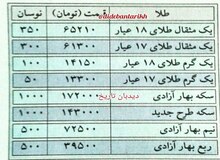 @didebantarikh
طلا قیمت (تومان) نوسان
یک مثقال طلای ۱۸ عیار ۶۵۲۱۰ ۳۵۰
یک مثقال طلای ۱۷ عیار ۶۱۳۰۰ ۳۰۰
یک گرم طلای ۱۸ عیار ۱۴۱۵۰ ۱۰۰
یک گرم طلای ۱۷ عیار ۱۳۳۰۰ ۵۰
سکه بهار آزادی ۱۷۲۰۰۰ ۱۰۰۰
سکه طرح جدید ۱۴۳۰۰۰ ۱۰۰۰
نیم بهار آزادی ۷۲۵۰۰ ۵۰۰
ربع بهار آزادی ۳۹۵۰۰ ۵۰۰
دیدبان تاریخ